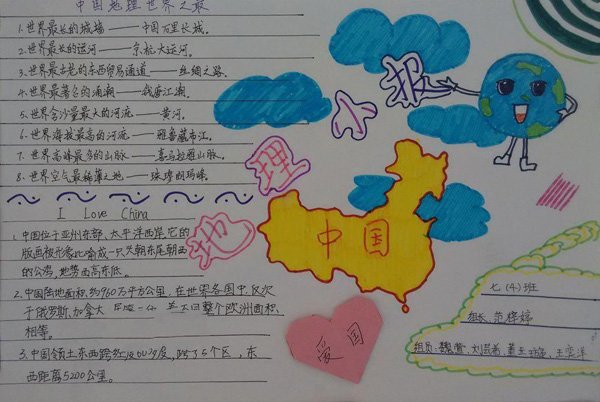 中国地理世界之最
1.世界最长的城墙——中国万里长城。
2.世界最长的运河——京杭大运河。
3.世界最古老的东西贸易通道——丝绸之路。
4.世界最著名的涌潮——钱唐江潮。
5.世界含沙量最大的河流——黄河。
6.世界海拔最高的河流——雅鲁藏布江。
7.世界高峰最多的山脉——喜马拉雅山脉。
8.世界空气最稀薄之地——珠穆朗玛峰。
I Love China
1.中国位于亚州东部、太平洋西岸,它的
版画被形象比喻成一只头朝东尾朝西
的公鸡,地势西高东低。
2.中国陆地面积约960万平方公里,在世界各国中,仅次
于俄罗斯、加拿大 整个欧洲面积
相等。
3.中国领土东西跨经度60多度,跨了5个区,东
西距离5200公里。
地理小报
中国
爱国
七(4)班
组长:范梓婷
组员: